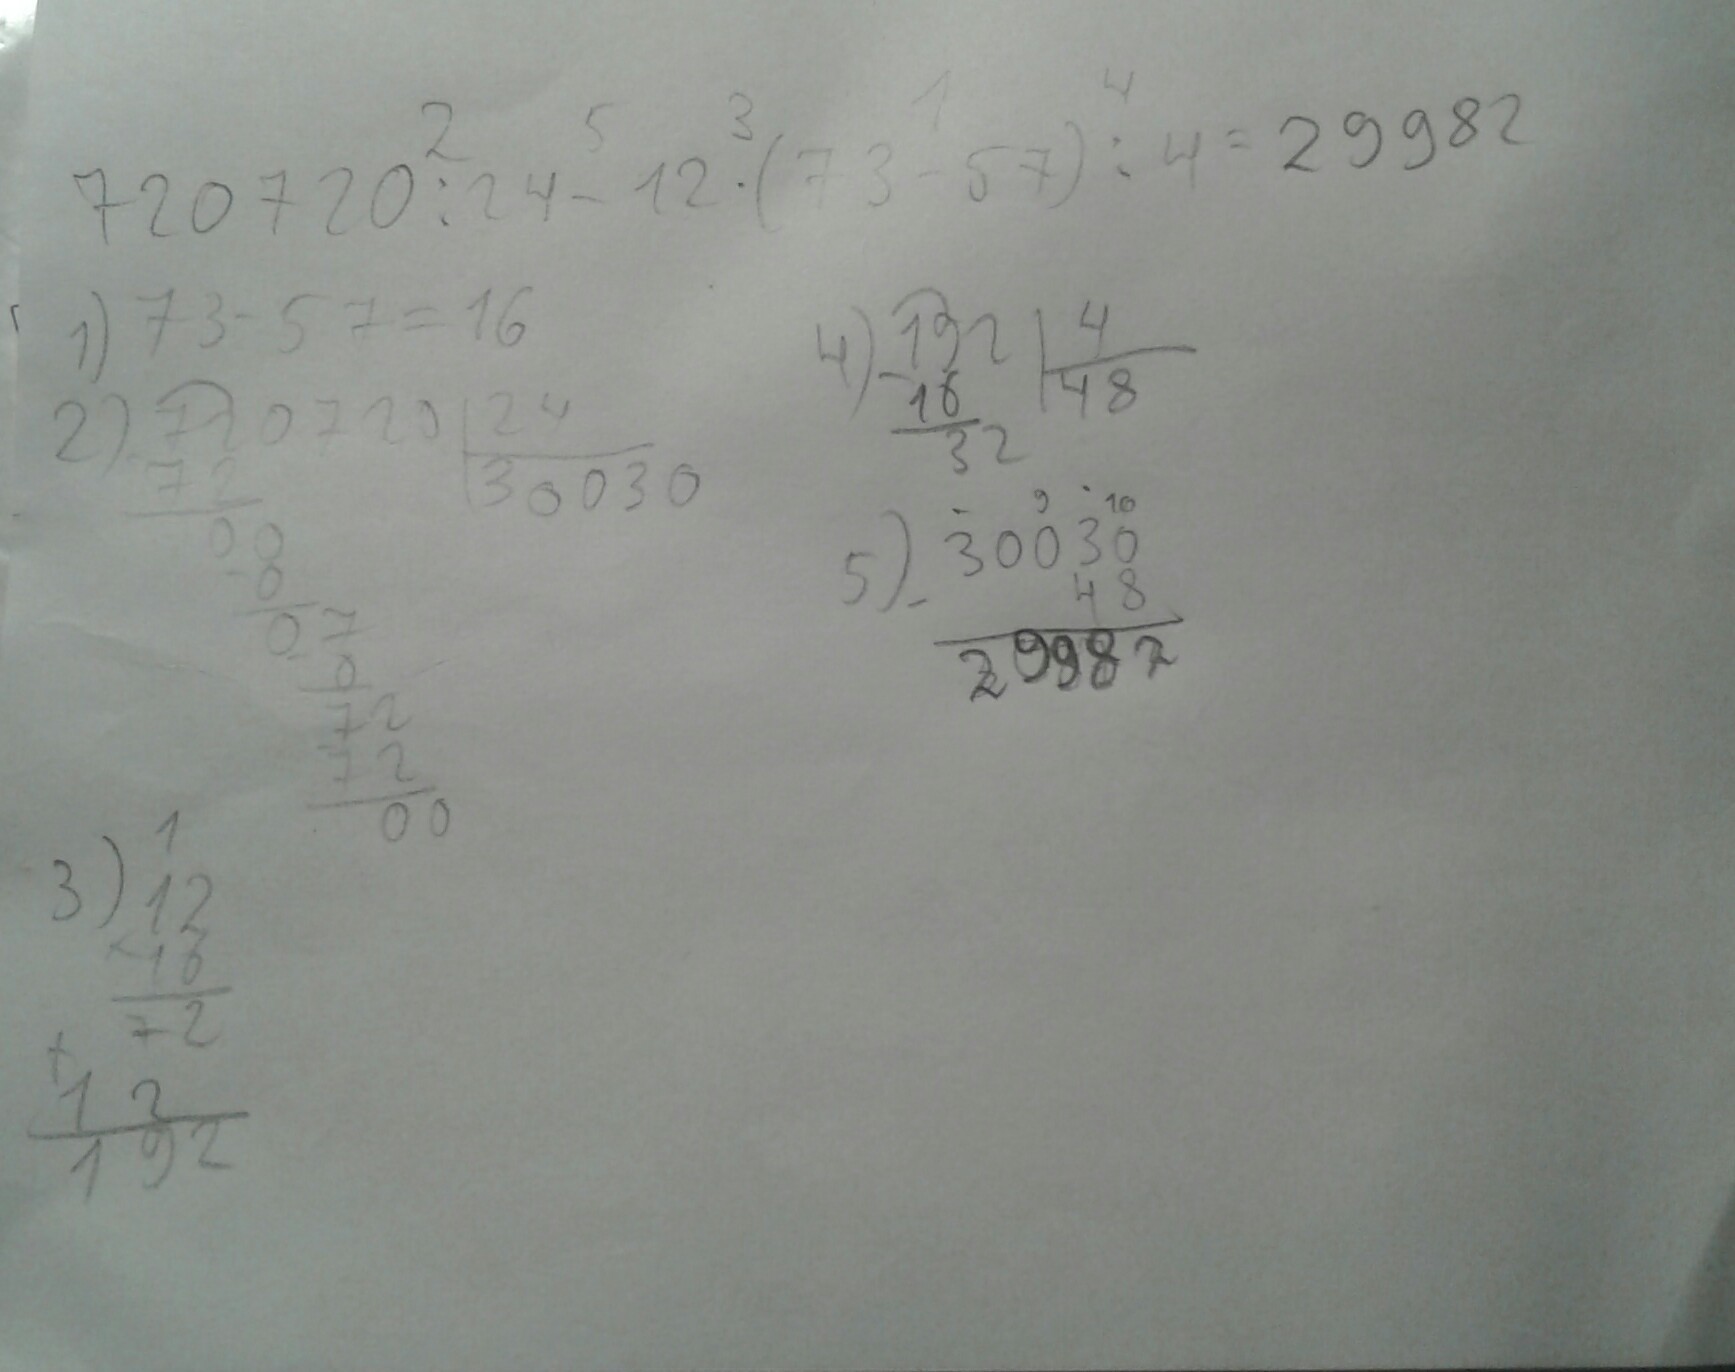 2 5 3 1 4
720720:24-12·(73-57):4=29982
1) 73-57=16
2) 720720 24
- 72 30030
00
-0
07
- 0
72
72
00
3) 1
12
× 16
72
+
12
192
4) - 192 4
16 48
32
5) - . 9 . 10
30030
48
29982